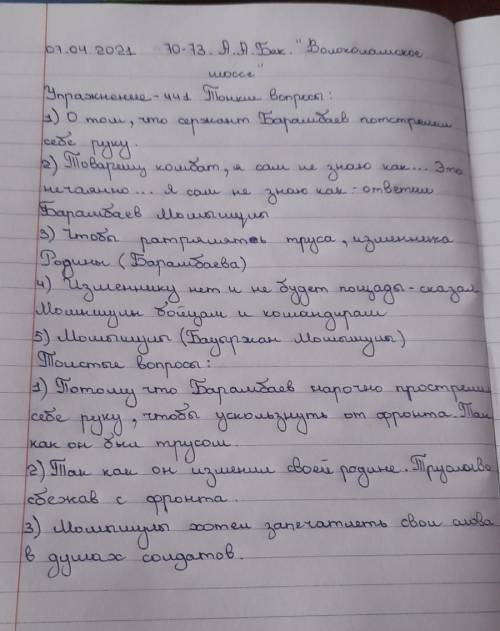 07.04.2021 70-73. А.А.Бек. "Волоколамское
шоссе"
Упражнение-441 Тонкие вопросы:
1) О том, что сержант Барамбаев потстрелил
себе руку.
2) Товарищ комбат, я сам не знаю как... Это
нечаянно... я сам не знаю как - ответил
Барамбаев Момышулы
3) Чтобы ратрилять труса, изменника
Родины (Барамбаева)
4) Изменнику нет и не будет пощады - сказал
Момышулы бойцам и командирам
5) Момышулы (Бауыржан Момышулы)
Толстые вопросы:
1) Потому что Барамбаев нарочно прострелил
себе руку, чтобы ускользнуть от фронта. Так
как он был трусом.
2) Так как он изменил своей родине. Трусливо
сбежав с фронта.
3) Момышулы хотел запечатлеть свои слова
в душах солдатов.